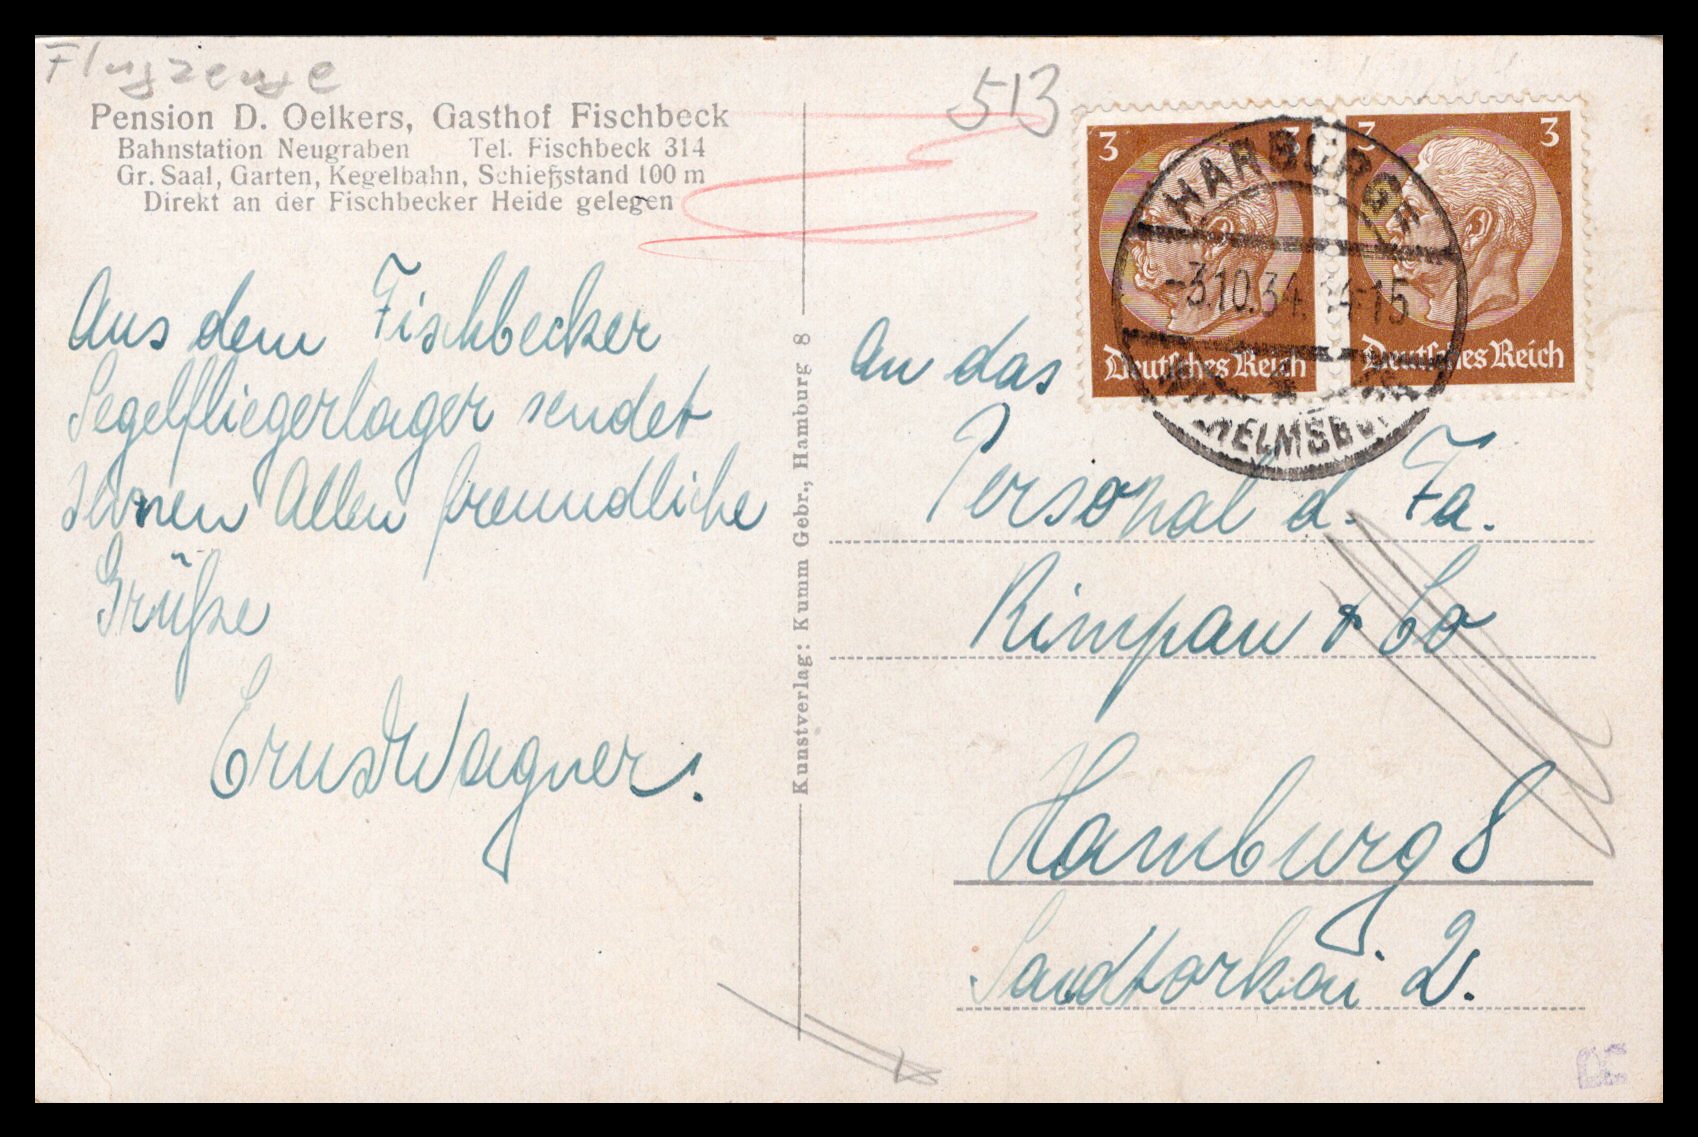 Flugzeuge
513
Pension D. Oelkers, Gasthof Fischbeck
Bahnstation Neugraben Tel. Fischbeck 314
Gr. Saal, Garten, Kegelbahn, Schießstand 100 m
Direkt an der Fischbecker Heide gelegen
Aus dem Fischbecker
Segelfliegerlager sendet
Ihnen Allen freundliche
Grüße
Ernst Wagner.
Kunstverlag: Kumm Gebr., Hamburg 8
3 3
Deutsches Reich
3 3
Deutsches Reich
HARBURG
-3.10.34. 14-15
WILHELMSBURG
An das
Personal d. Fa.
Rimpau & Co
Hamburg 8
Sandtorkai 2.